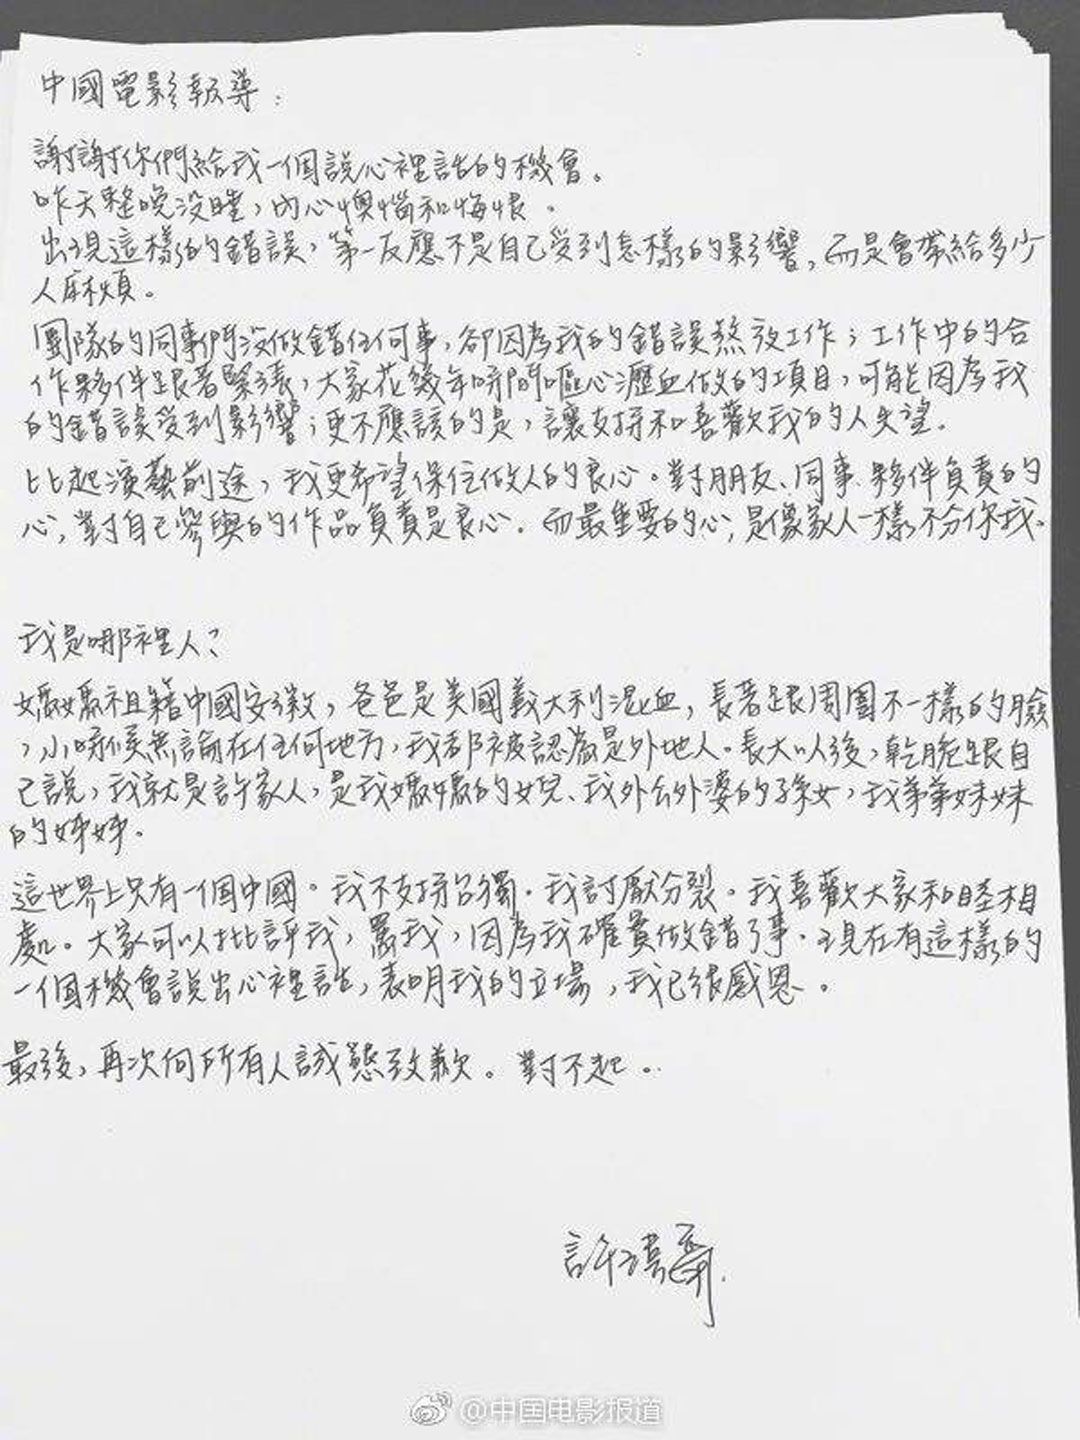 中國電影報導：
謝謝你們給我一個說心裡話的機會。
昨天整晚没睡，內心懊惱和悔恨。
出現這樣的錯誤，第一反應不是自己受到怎樣的影響，而是會帶給多少
人麻煩。
團隊的同事們沒做錯任何事，卻因為我的錯誤熬夜工作；工作中的合
作夥伴跟著緊張，大家花幾年時間嘔心瀝血做的項目，可能因為我
的錯誤受到影響；更不應該的是，讓支持和喜歡我的人失望。
比起演藝前途，我更希望保住做人的良心。對朋友、同事、夥伴負責的
心，對自己參與的作品負責是良心。而最重要的心，是像家人一樣不分你我。
我是哪裡人？
媽媽祖籍中國安徽，爸爸是美國義大利混血，長著跟周圍不一樣的臉
，小時候無論在任何地方，我都被認為是外地人。長大以後，乾脆跟自
己說，我就是許家人，是我媽媽的女兒、我外公外婆的孫女，我弟弟妹妹
的姊姊。
這世界上只有一個中國。我不支持台獨。我討厭分裂。我喜歡大家和睦相
處。大家可以批評我，罵我，因為我確實做錯了事。現在有這樣的
一個機會說出心裡話，表明我的立場，我已很感恩。
最後，再次向所有人誠懇致歉。對不起。
許瑋甯
@中国电影报道